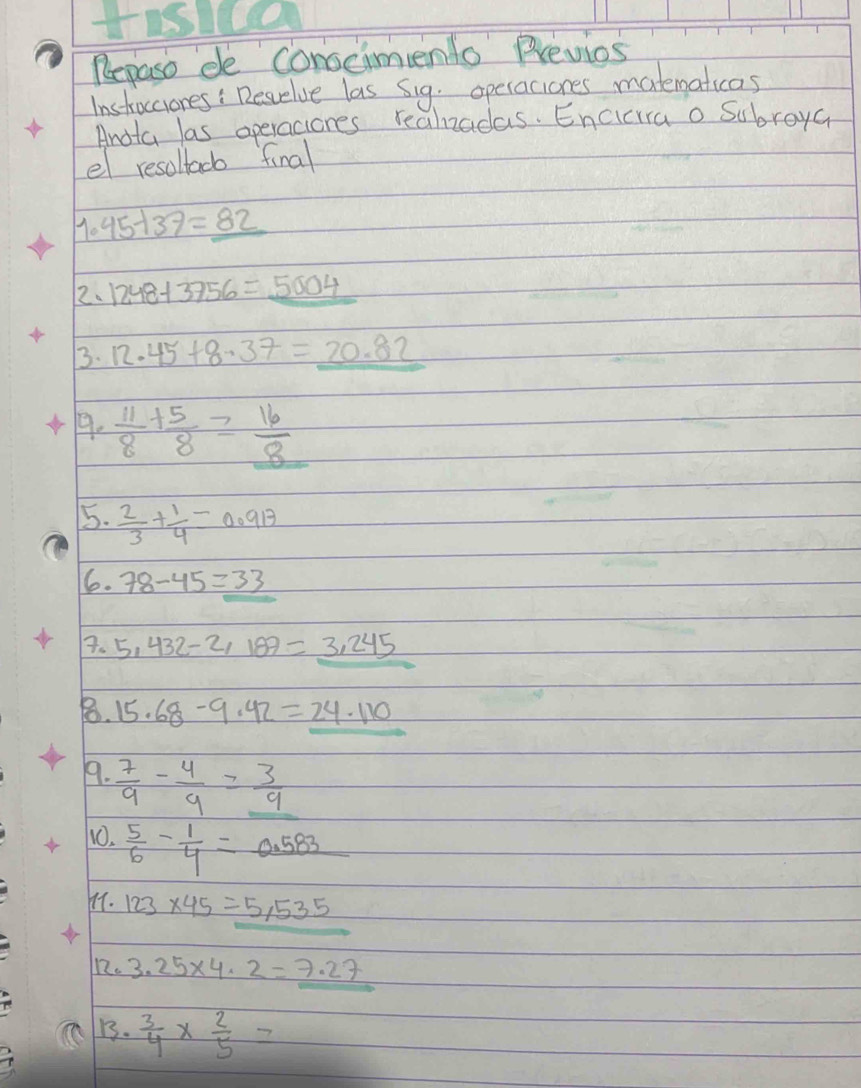 física
Repaso de Conocimiento Previos
Instrucciones: Resuelve las Sig. operaciones matematicas
Anota las operaciones realizadas. Encierra o Subraya
el resultado final
1. 45+37=82
2. 1248+3756=5004
3. 12.45+8.37=20.82
4. 11/8 + 5/8 = 16/8
5. 2/3 + 1/4 = 0.913
6. 78-45=33
7. 5,432-2,187=3,245
8. 15.68-9.42=24.110
9. 7/9 - 4/9 = 3/9
10. 5/6 - 1/4 = 0.583
11. 123×45=5,535
12. 3.25×4.2=7.27
13. 3/4 × 2/5 =